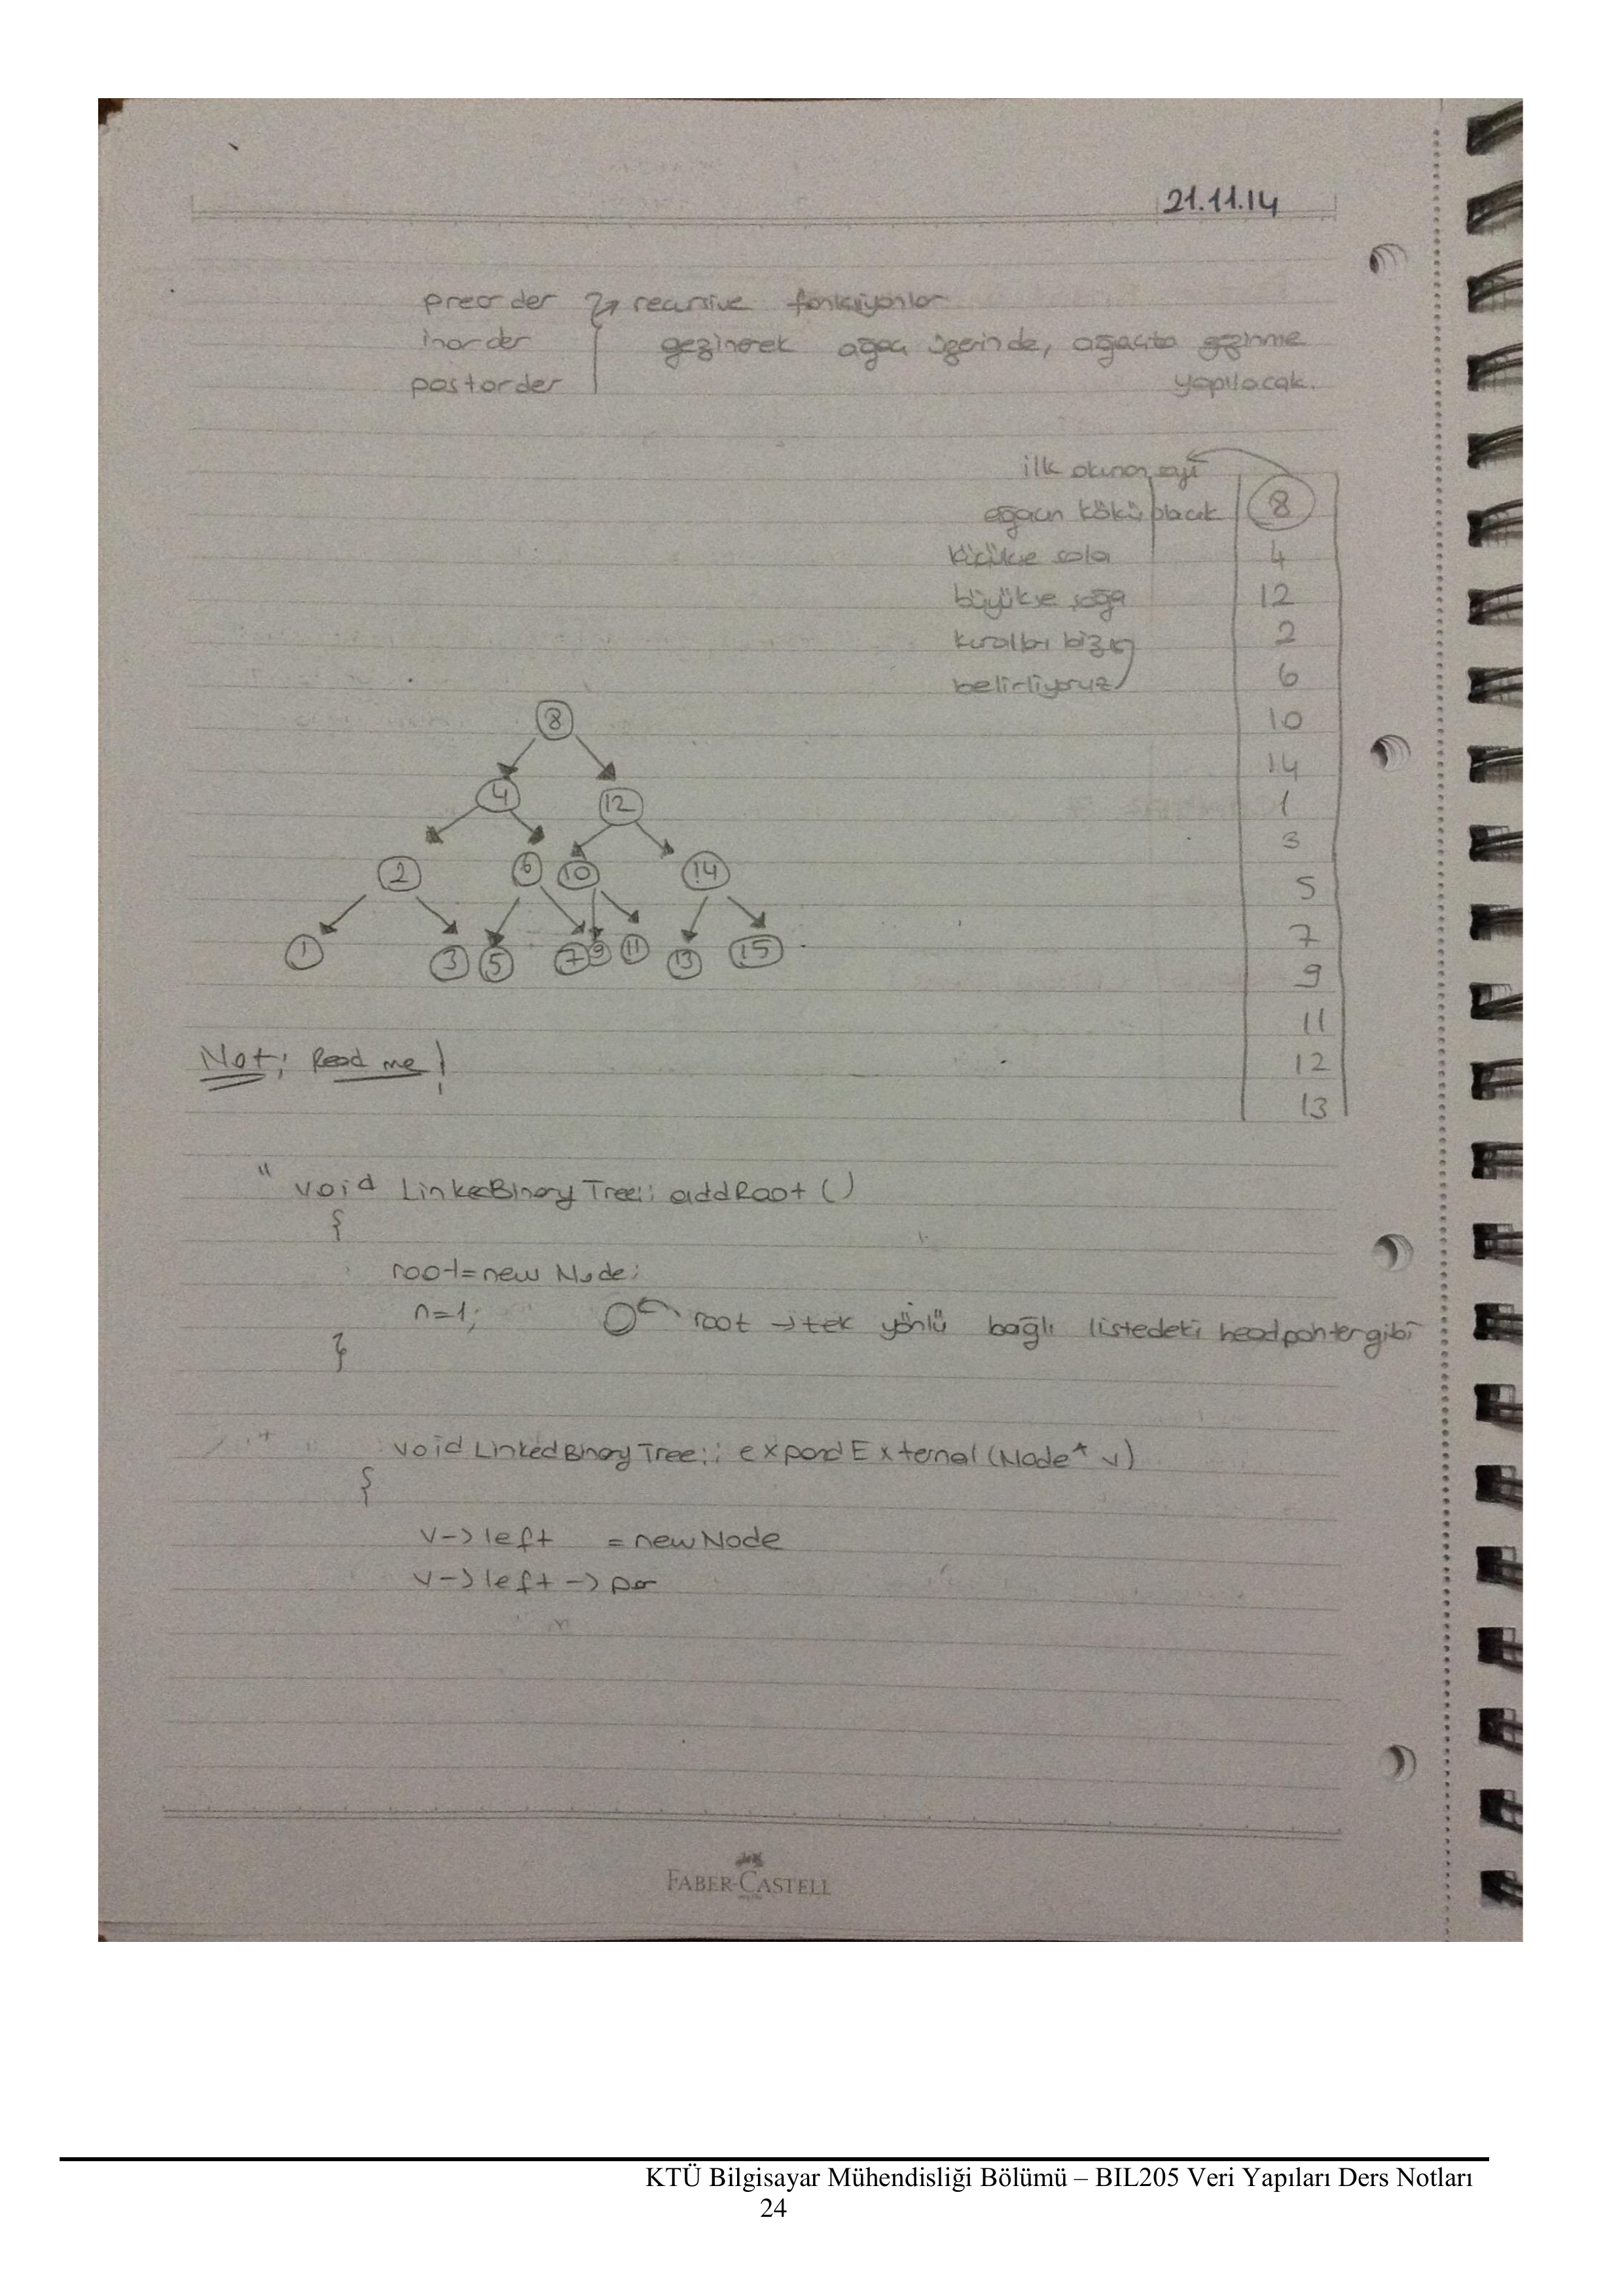 21.11.14
preorder → recursive fonksiyonlar
inorder gezinerek ağaç üzerinde, ağaçta gezinme
postorder yapılacak.
ilk okunan sayı
ağacın kökü olacak 8
küçükse sola 4
büyükse sağa 12
kuralları biz 2
belirliyoruz 6
10
14
1
3
5
7
9
11
12
13
8
4 12
2 6 10 14
1 3 5 7 9 11 13 15
Not; Read me!
" void LinkedBinaryTree:: addRoot ()
{
root=new Node;
n=1; root → tek yönlü bağlı listedeki headpointer gibi
}
void LinkedBinaryTree:: expandExternal (Node* v)
{
v->left = new Node
v->left -> par
FABER-CASTELL
KTÜ Bilgisayar Mühendisliği Bölümü – BIL205 Veri Yapıları Ders Notları
24